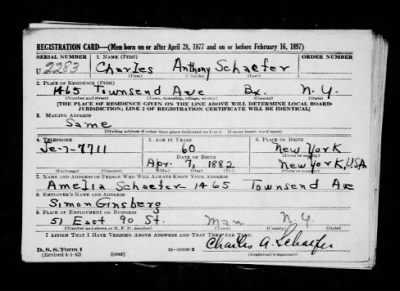 REGISTRATION CARD—(Men born on or after April 28, 1877 and on or before February 16, 1897)
SERIAL NUMBER 1. NAME (Print) ORDER NUMBER
U 2283 Charles Anthony Schaefer
(First) (Middle) (Last)
2. PLACE OF RESIDENCE (Print)
1465 Townsend Ave Bx. N.Y.
(Number and street) (Town, township, village, or city) (County) (State)
[THE PLACE OF RESIDENCE GIVEN ON THE LINE ABOVE WILL DETERMINE LOCAL BOARD
JURISDICTION; LINE 2 OF REGISTRATION CERTIFICATE WILL BE IDENTICAL]
3. MAILING ADDRESS
Same
[Mailing address if other than place indicated on line 2. If same insert word same]
4. TELEPHONE 5. AGE IN YEARS 6. PLACE OF BIRTH
Je-7-7711 60 New York
DATE OF BIRTH (Town or county)
Apr. 7, 1882 New York, USA
(Mo.) (Day) (Yr.) (State or country)
7. NAME AND ADDRESS OF PERSON WHO WILL ALWAYS KNOW YOUR ADDRESS
Amelia Schaefer 1465 Townsend Ave
8. EMPLOYER'S NAME AND ADDRESS
Simon Ginsberg
9. PLACE OF EMPLOYMENT OR BUSINESS
51 East 90 St. Man N.Y.
(Number and street or R. F. D. number) (Town) (County) (State)
I AFFIRM THAT I HAVE VERIFIED ABOVE ANSWERS AND THAT THEY ARE TRUE.
Charles A. Schaefer
D. S. S. Form 1
(Revised 4-1-42) (over) (Registrant's signature)